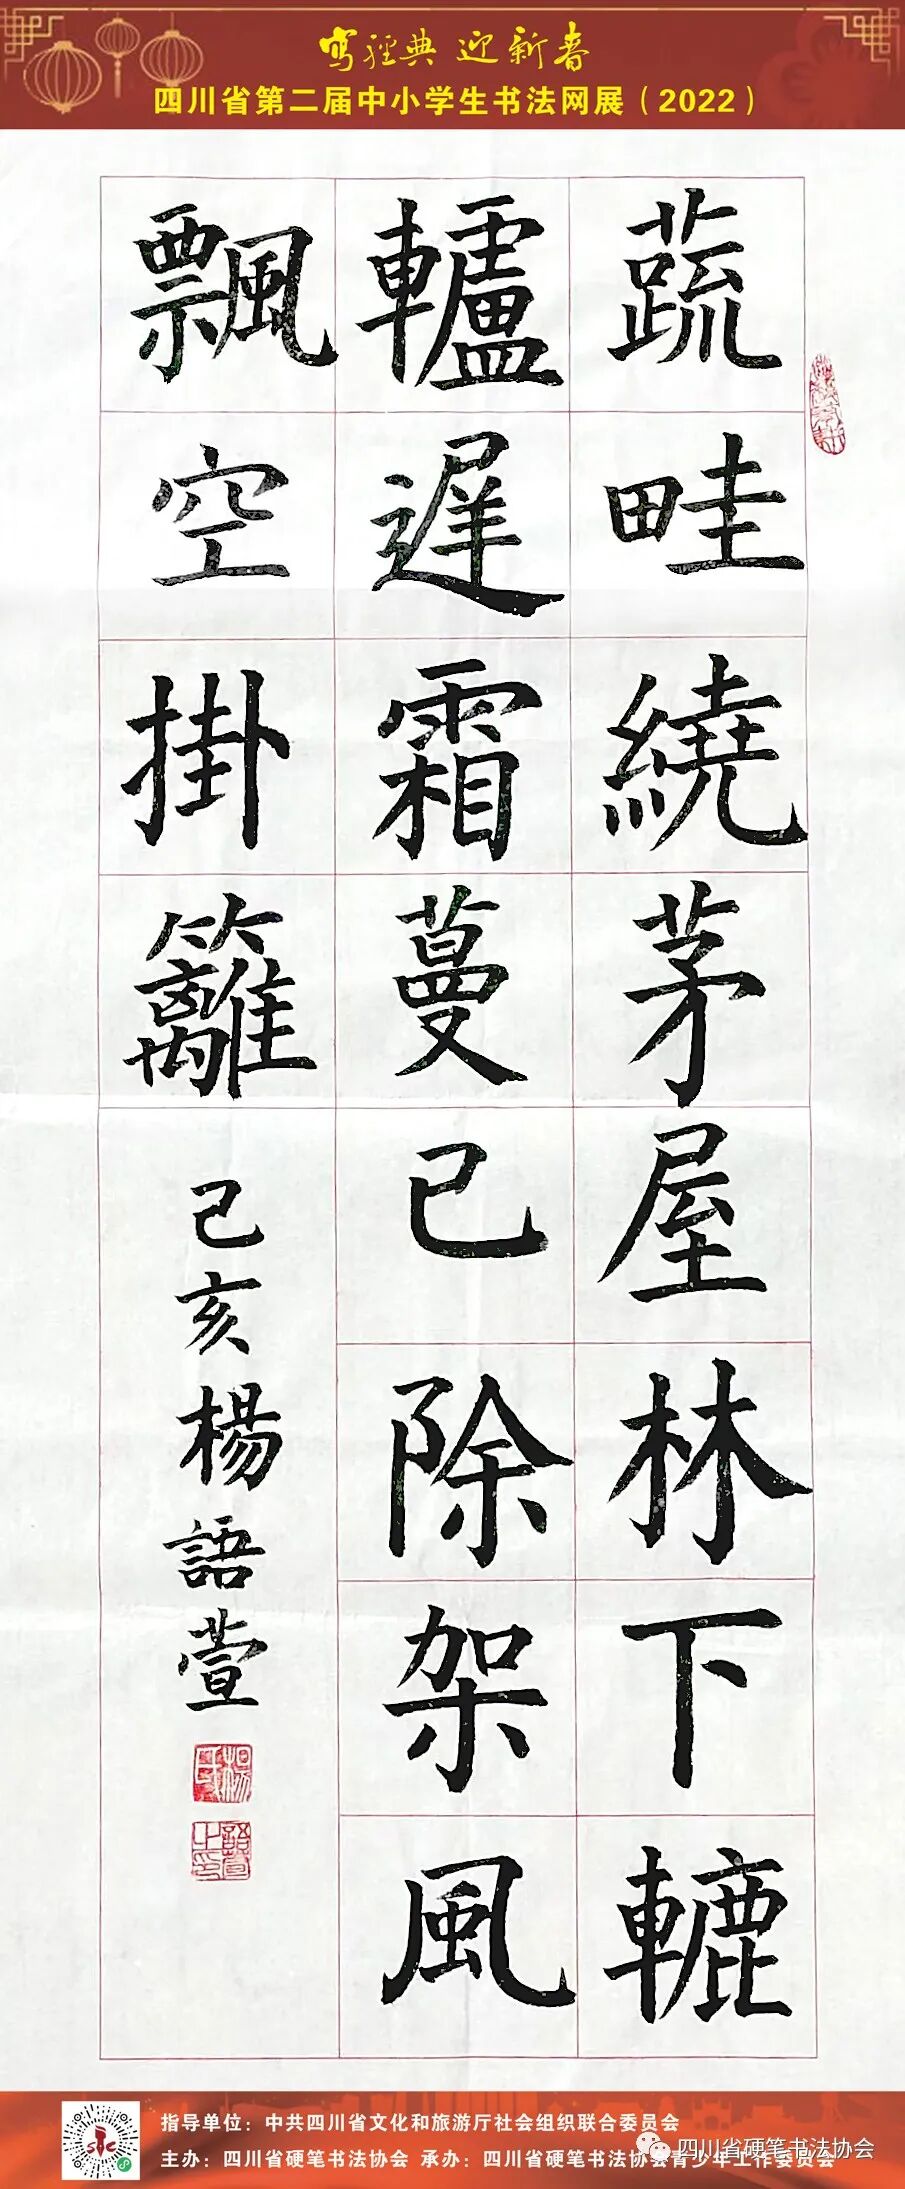 写经典 迎新春
四川省第二届中小学生书法网展（2022）
蔬畦繞茅屋林下轆
轤遲霜蔓已除架風
飄空掛籬
己亥楊語萱
楊氏
語萱之印
指导单位：中共四川省文化和旅游厅社会组织联合委员会
主办：四川省硬笔书法协会 承办：四川省硬笔书法协会青少年工作委员会
四川省硬笔书法协会